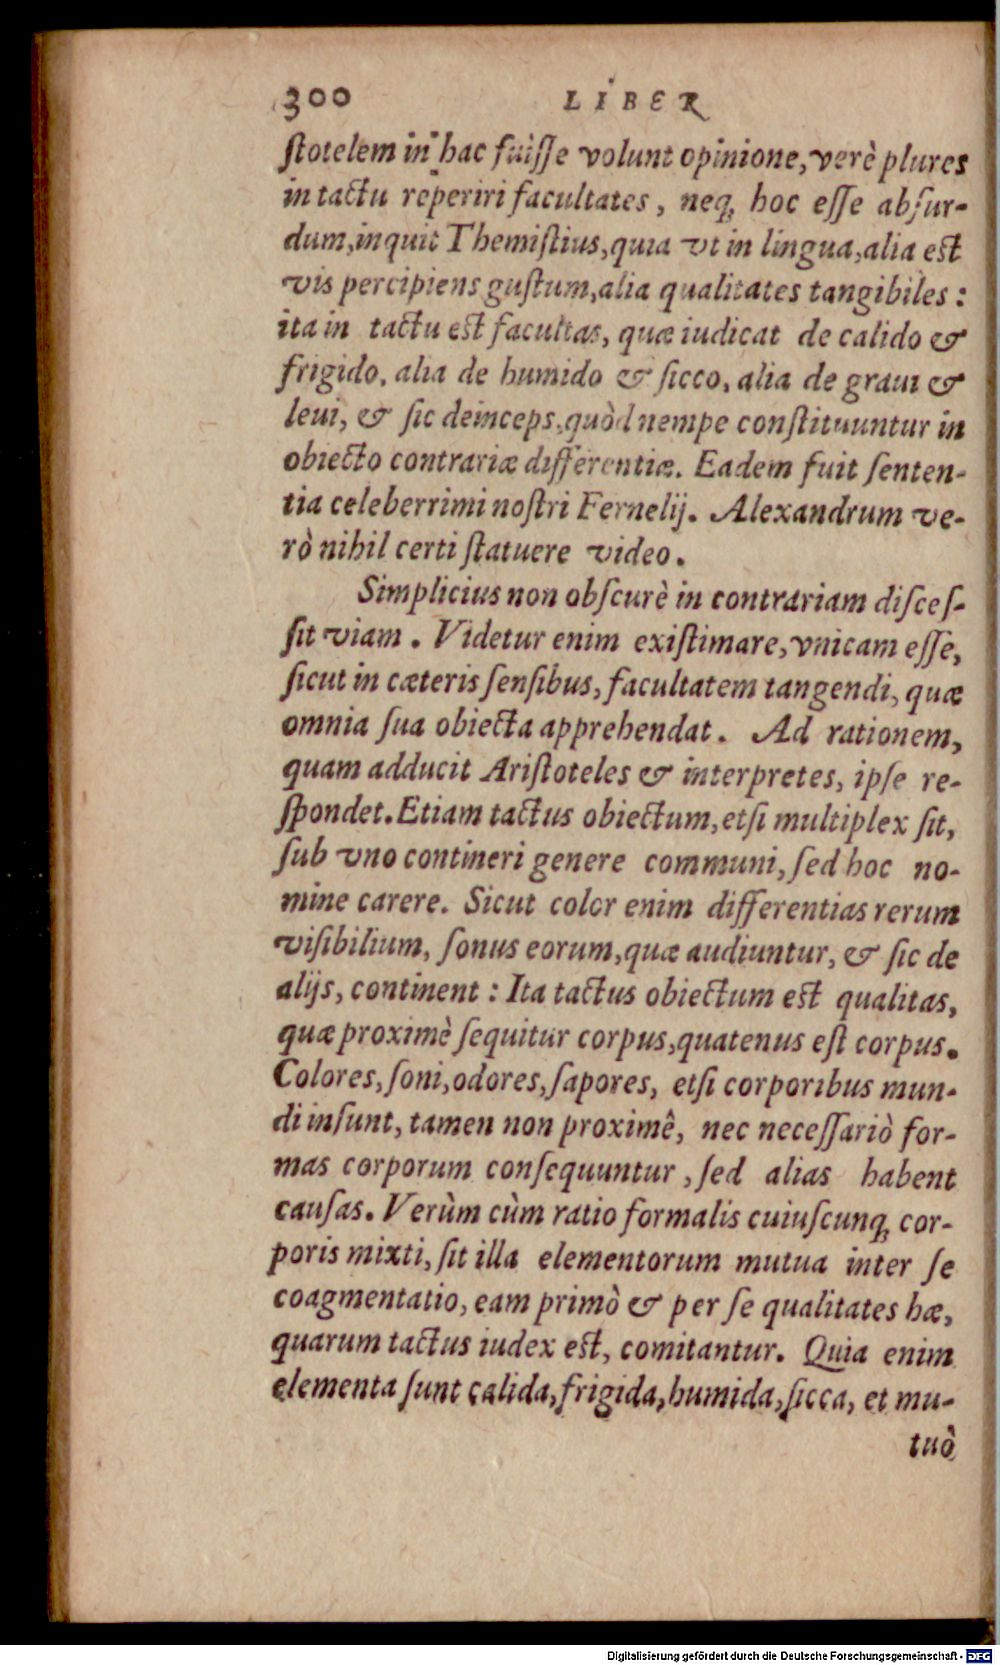 300 LIBER
ſtotelem in hac fuiſſe volunt opinione, verè plures
in tactu reperiri facultates, neq; hoc eſſe abſur-
dum, inquit Themiſtius, quia vt in lingua, alia eſt
vis percipiens guſtum, alia qualitates tangibiles:
ita in tactu eſt facultas, quæ iudicat de calido &
frigido, alia de humido & ſicco, alia de graui &
leui, & ſic deinceps, quòd nempe conſtituuntur in
obiecto contrariæ differentiæ. Eadem fuit ſenten-
tia celeberrimi noſtri Fernelij. Alexandrum ve-
rò nihil certi ſtatuere video.
Simplicius non obſcurè in contrariam diſceſ-
ſit viam. Videtur enim exiſtimare, vnicam eſſe,
ſicut in cæteris ſenſibus, facultatem tangendi, quæ
omnia ſua obiecta apprehendat. Ad rationem,
quam adducit Ariſtoteles & interpretes, ipſe re-
ſpondet. Etiam tactus obiectum, etſi multiplex ſit,
ſub vno contineri genere communi, ſed hoc no-
mine carere. Sicut color enim differentias rerum
viſibilium, ſonus eorum, quæ audiuntur, & ſic de
alijs, continent: Ita tactus obiectum eſt qualitas,
quæ proximè ſequitur corpus, quatenus eſt corpus.
Colores, ſoni, odores, ſapores, etſi corporibus mun-
di inſunt, tamen non proximê, nec neceſſariò for-
mas corporum conſequuntur, ſed alias habent
cauſas. Verùm cùm ratio formalis cuiuſcunq; cor-
poris mixti, ſit illa elementorum mutua inter ſe
coagmentatio, eam primò & per ſe qualitates hæ,
quarum tactus iudex eſt, comitantur. Quia enim
elementa ſunt calida, frigida, humida, ſicca, et mu-
tuò
Digitalisierung gefördert durch die Deutsche Forschungsgemeinschaft - DFG